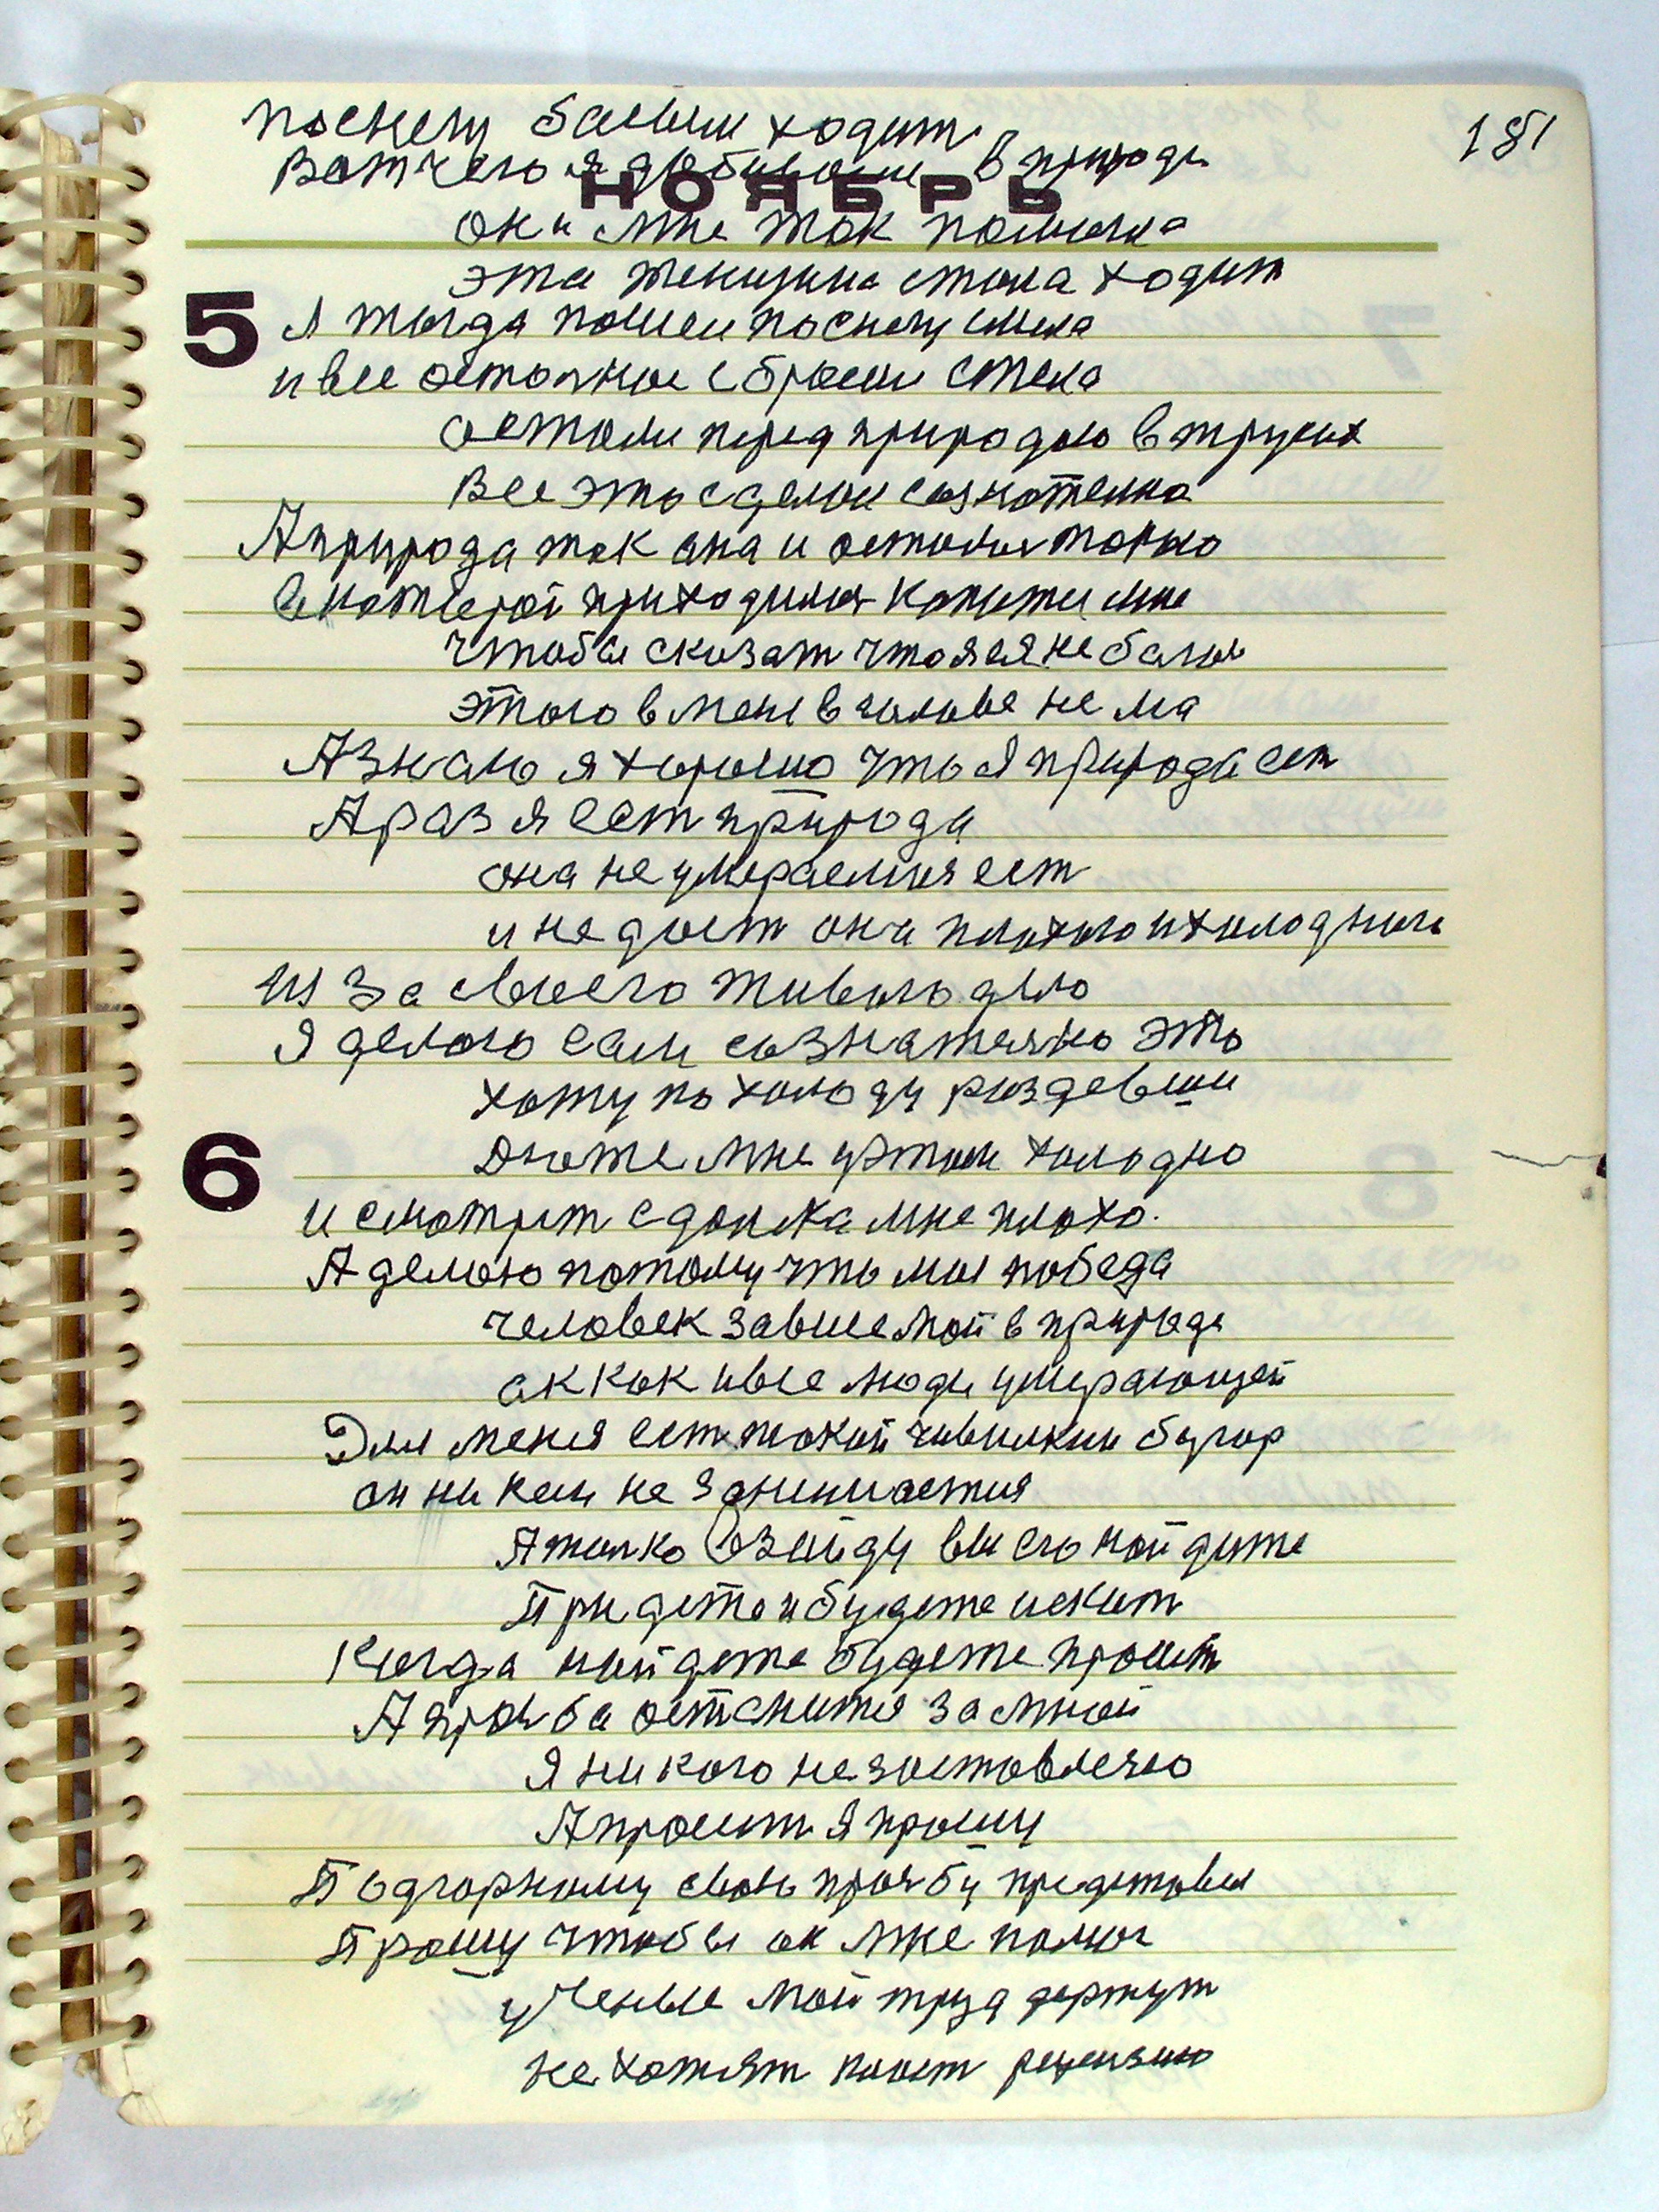 181
по снегу басым ходит
Вот чего я добивалси в природи
НОЯБРЬ
она мне так помогла
эта женщина стала ходит
5
Я тогда пошел по снегу смела
и все остальное сбросил с тела
остался перед природою в трусих
Все это сделал сознателно
А природа так она и осталися только
в которой приходится Копати мне
чтобы сказат что я ея не боялся
этого в меня в голове не ма
А знаю я хорошо что я природа ест
А раз я ест природа
она не умераемая ест
и не даст она плохого и холодного
из за своего живого дело
Я делаю сам сознателно это
хожу по холоду раздевши
6
Даже мне у этом холодно
и смотрит с далека мне плохо.
А делаю потому что моя победа
человек зависемой в природе
ак как и все люди умерающей
Для меня ест такой чивилкин бугор
он ни кем не занимается
А толко взайду вы его найдите
Придете и будете искат
Когда найдете будете просит
А прозба останится за мной
Я ни кого не заставлеяю
А просит я прошу
Подгорному свою прозбу представил
Прошу чтобы он мне помог
ученые мой труд держут
не хотят писат рецензию